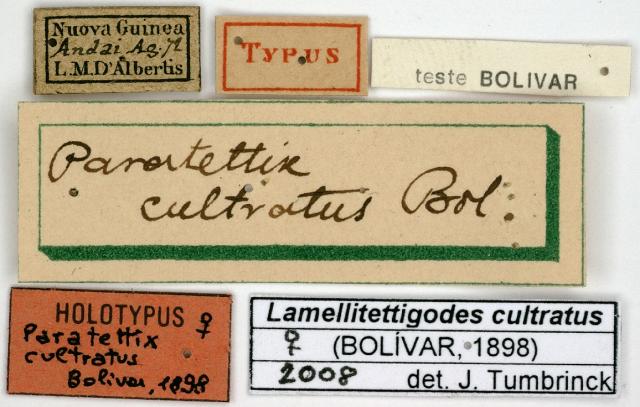 Nuova Guinea
Andai Ag. 72
L.M.D'Albertis
TYPUS
teste BOLIVAR
Paratettix
cultratus Bol:
HOLOTYPUS ♀
Paratettix
cultratus
Bolivar, 1898
Lamellitettigodes cultratus
♀ (BOLÍVAR, 1898)
2008 det. J. Tumbrinck